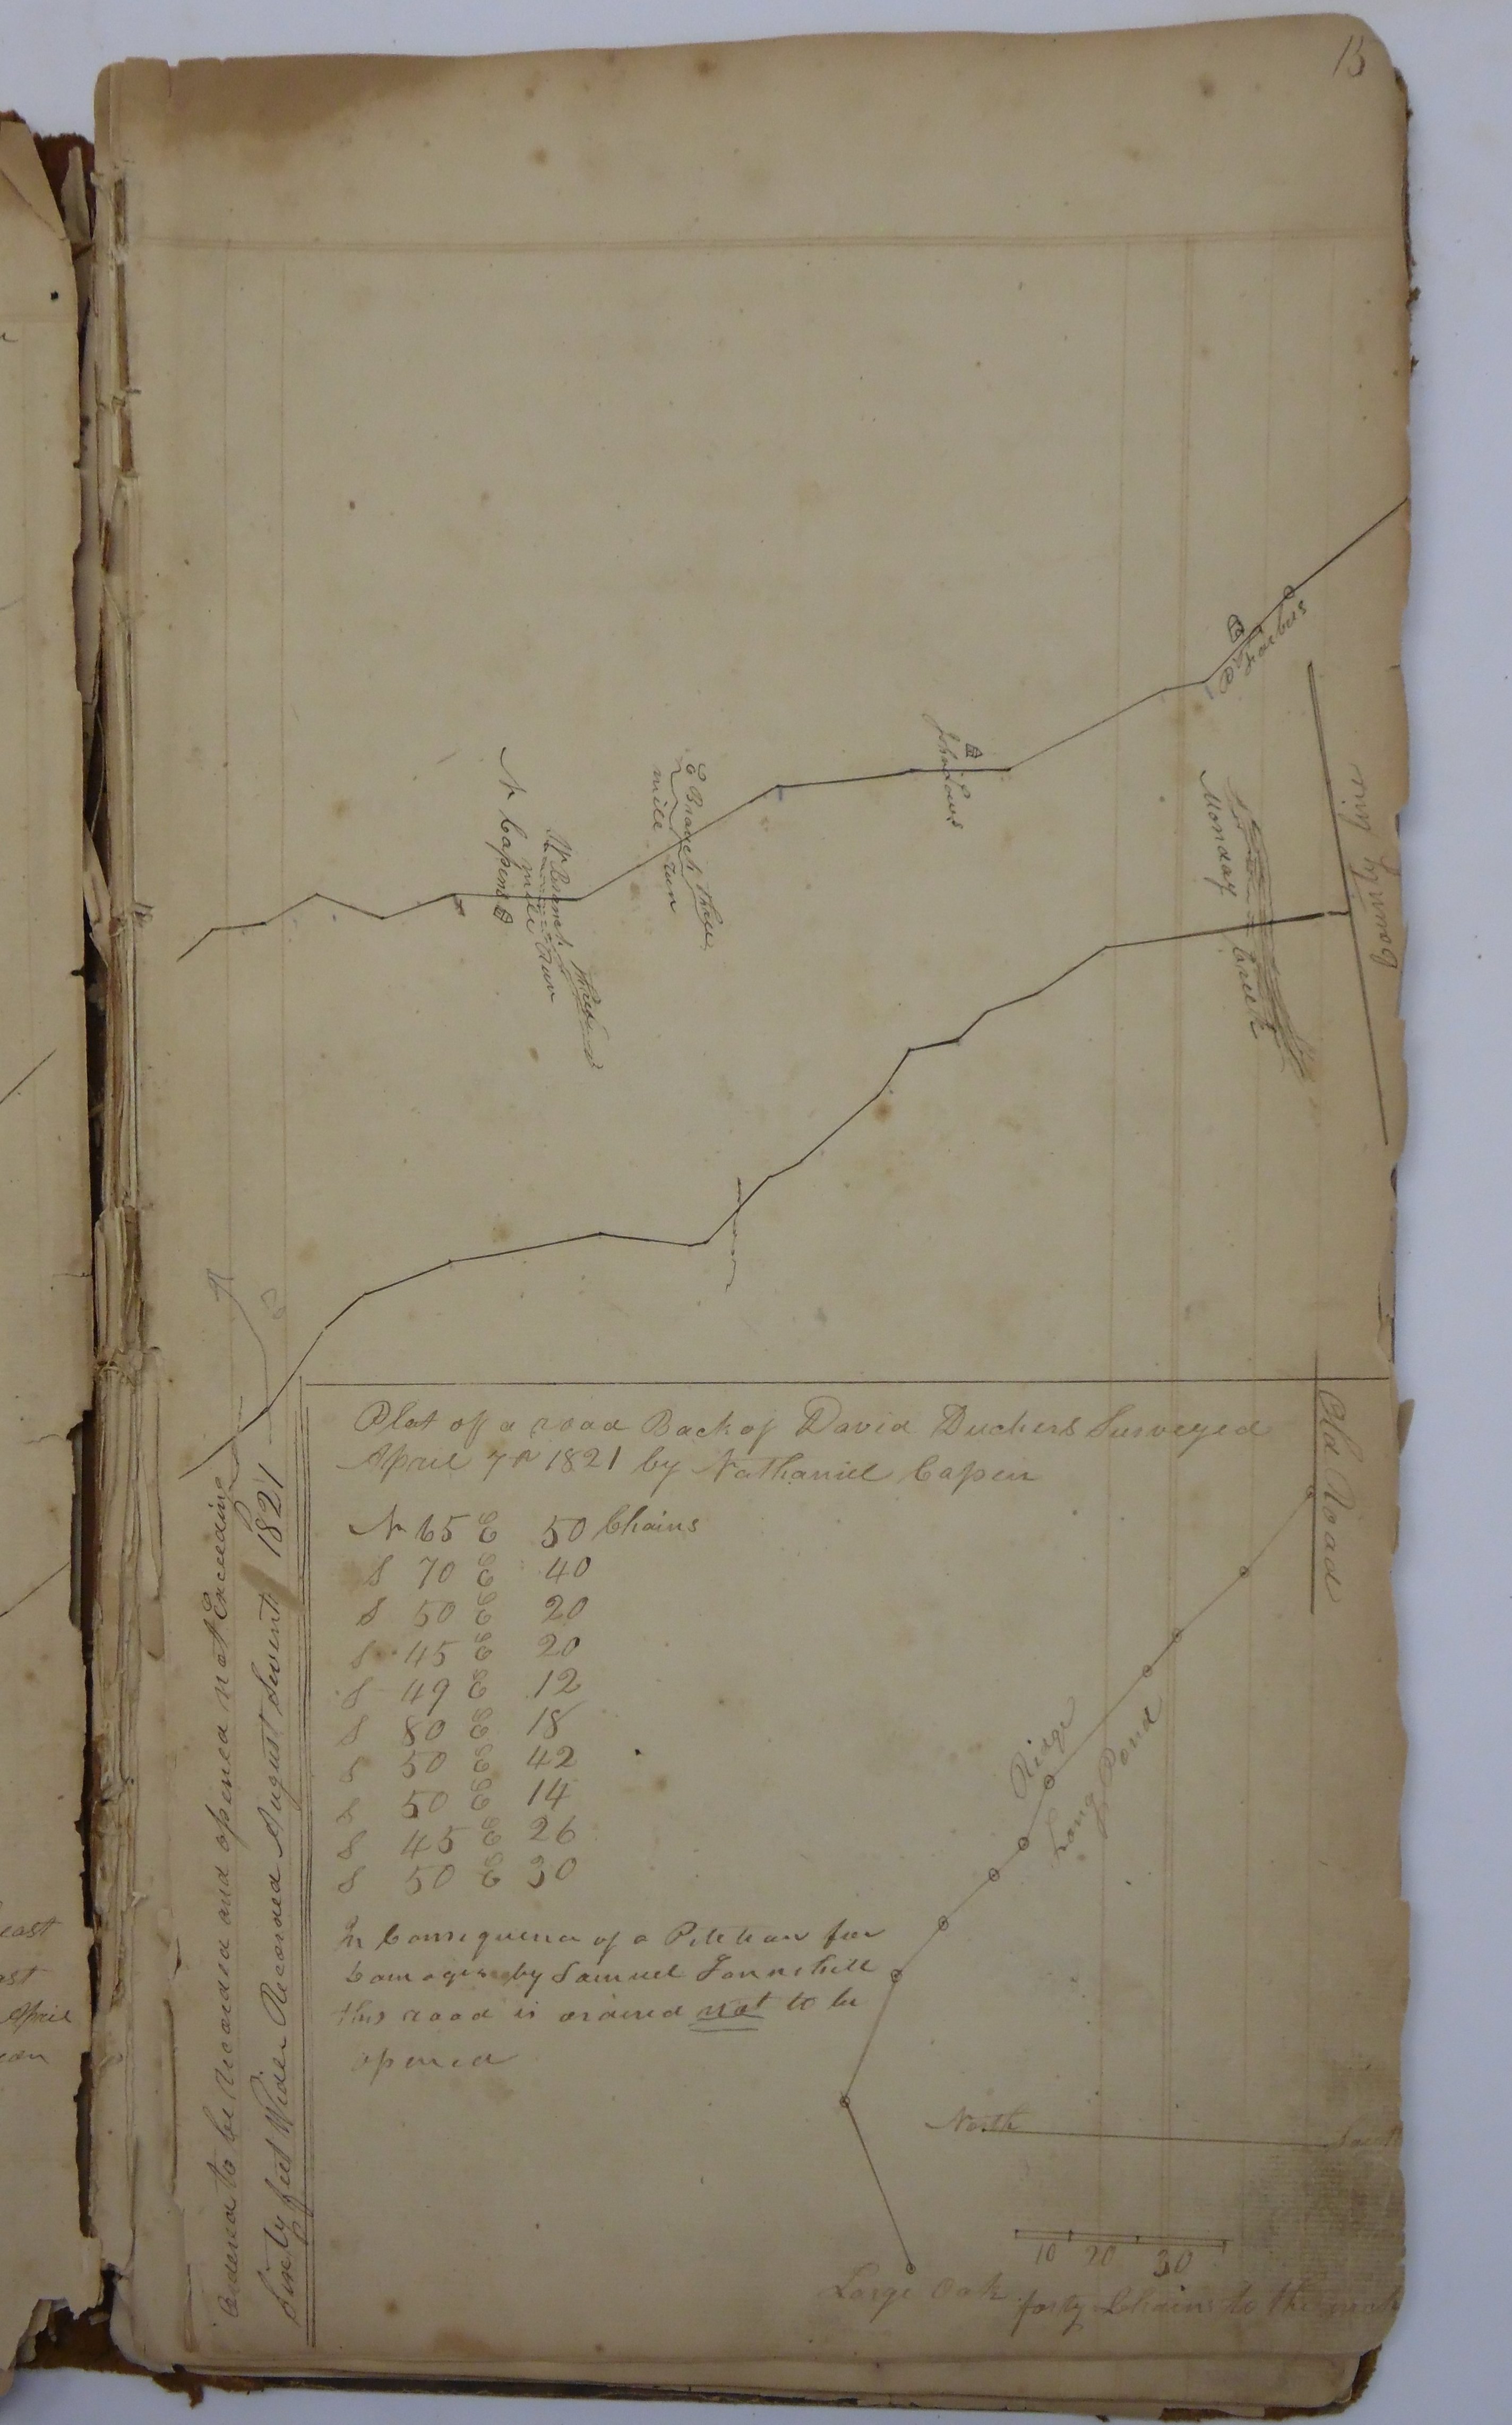 13
County line
Monday Creek
E Branch
mill run
N Capens
W Branch
mill run
Plat of a road Back of David Duchers Surveyed
April 7th 1821 by Nathaniel Capen
N 65 E 50 Chains
S 70 E 40
S 50 E 20
S 45 E 20
S 49 E 12
S 80 E 18
S 50 E 42
S 50 E 14
S 45 E 26
S 50 E 30
In Consequence of a Petetion for
Damages by Samuel
this road is ordered not to be
opened
Old Road
Ridge
Long Pond
North
South
10 20 30
Large Oak
forty Chains to the inch
Ordered to be Recorded and opened not Exceeding
Sixty feet Wide Recorded August 1821
east
April